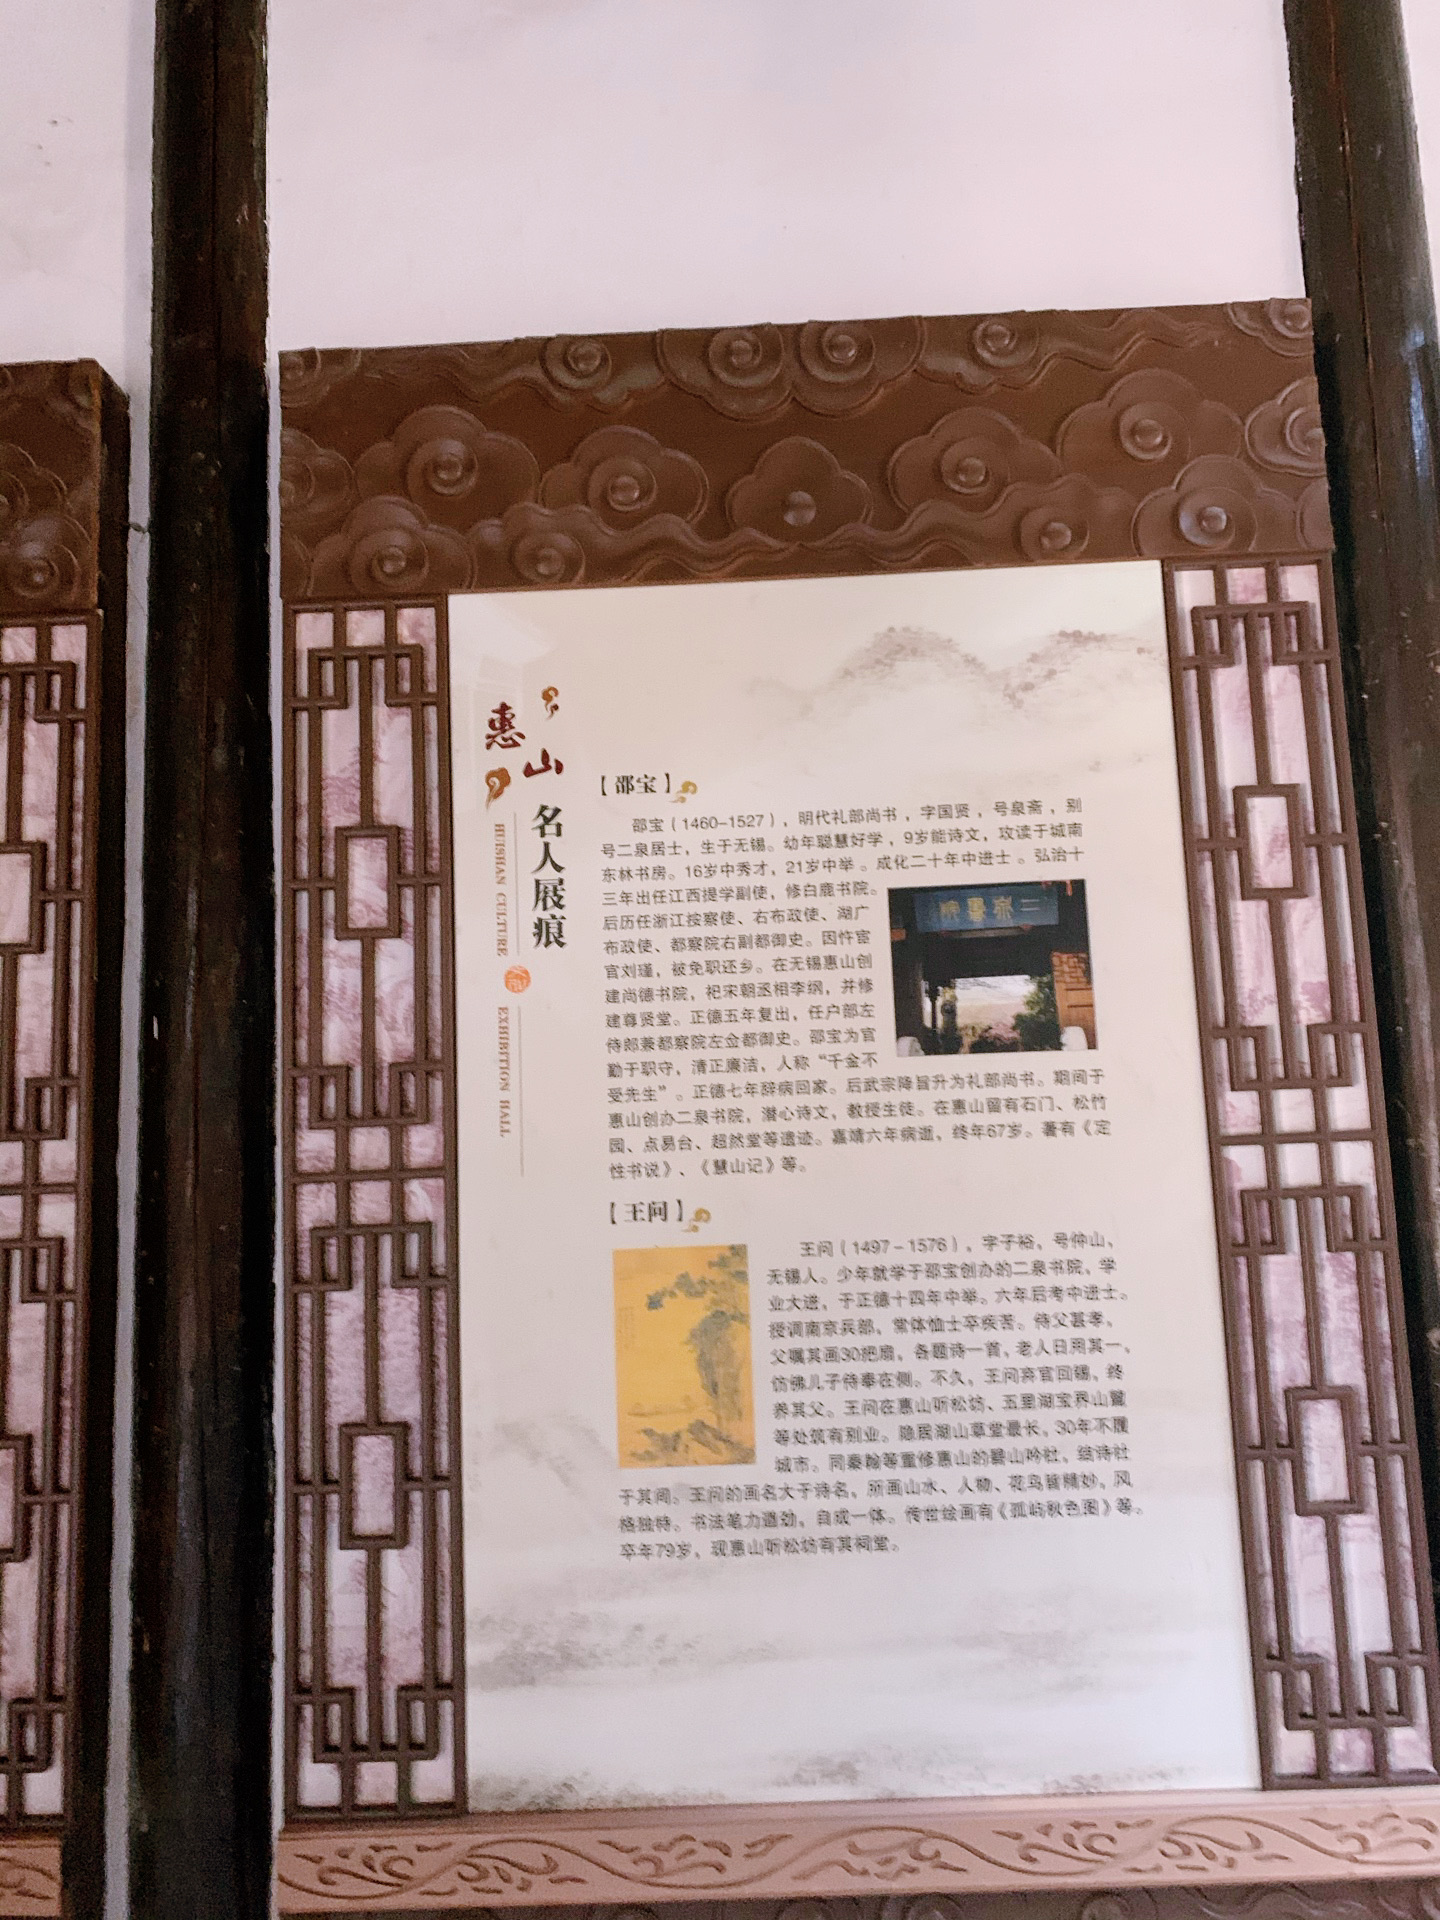 惠山
名人展痕
HUISHAN CULTURE
EXHIBITION HALL
【邵宝】
邵宝（1460-1527），明代礼部尚书，字国贤，号泉斋，别
号二泉居士，生于无锡。幼年聪慧好学，9岁能诗文，攻读于城南
东林书房。16岁中秀才，21岁中举。成化二十年中进士。弘治十
三年出任江西提学副使，修白鹿书院。
后历任浙江按察使、右布政使、湖广
布政使、都察院右副都御史。因忤宦
官刘瑾，被免职还乡。在无锡惠山创
建尚德书院，祀宋朝丞相李纲，并修
建尊贤堂。正德五年复出，任户部左
侍郎兼都察院左佥都御史。邵宝为官
勤于职守，清正廉洁，人称“千金不
受先生”。正德七年辞病回家。后武宗降旨升为礼部尚书。期间于
惠山创办二泉书院，潜心诗文，教授生徒。在惠山留有石门、松竹
园、点易台、超然堂等遗迹。嘉靖六年病逝，终年67岁。著有《定
性书说》、《慧山记》等。
二泉書院
【王问】
王问（1497-1576），字子裕，号仲山，
无锡人。少年就学于邵宝创办的二泉书院，学
业大进，于正德十四年中举。六年后考中进士。
授调南京兵部，常体恤士卒疾苦。侍父甚孝，
父嘱其画30把扇，各题诗一首，老人日用其一，
仿佛儿子侍奉在侧。不久，王问弃官回锡，终
养其父。王问在惠山听松坊、五里湖宝界山麓
等处筑有别业。隐居湖山草堂最长，30年不履
城市。同秦翰等重修惠山的碧山吟社，结诗社
于其间。王问的画名大于诗名，所画山水、人物、花鸟皆精妙，风
格独特。书法笔力遒劲，自成一体。传世绘画有《孤屿秋色图》等。
卒年79岁，现惠山听松坊有其祠堂。